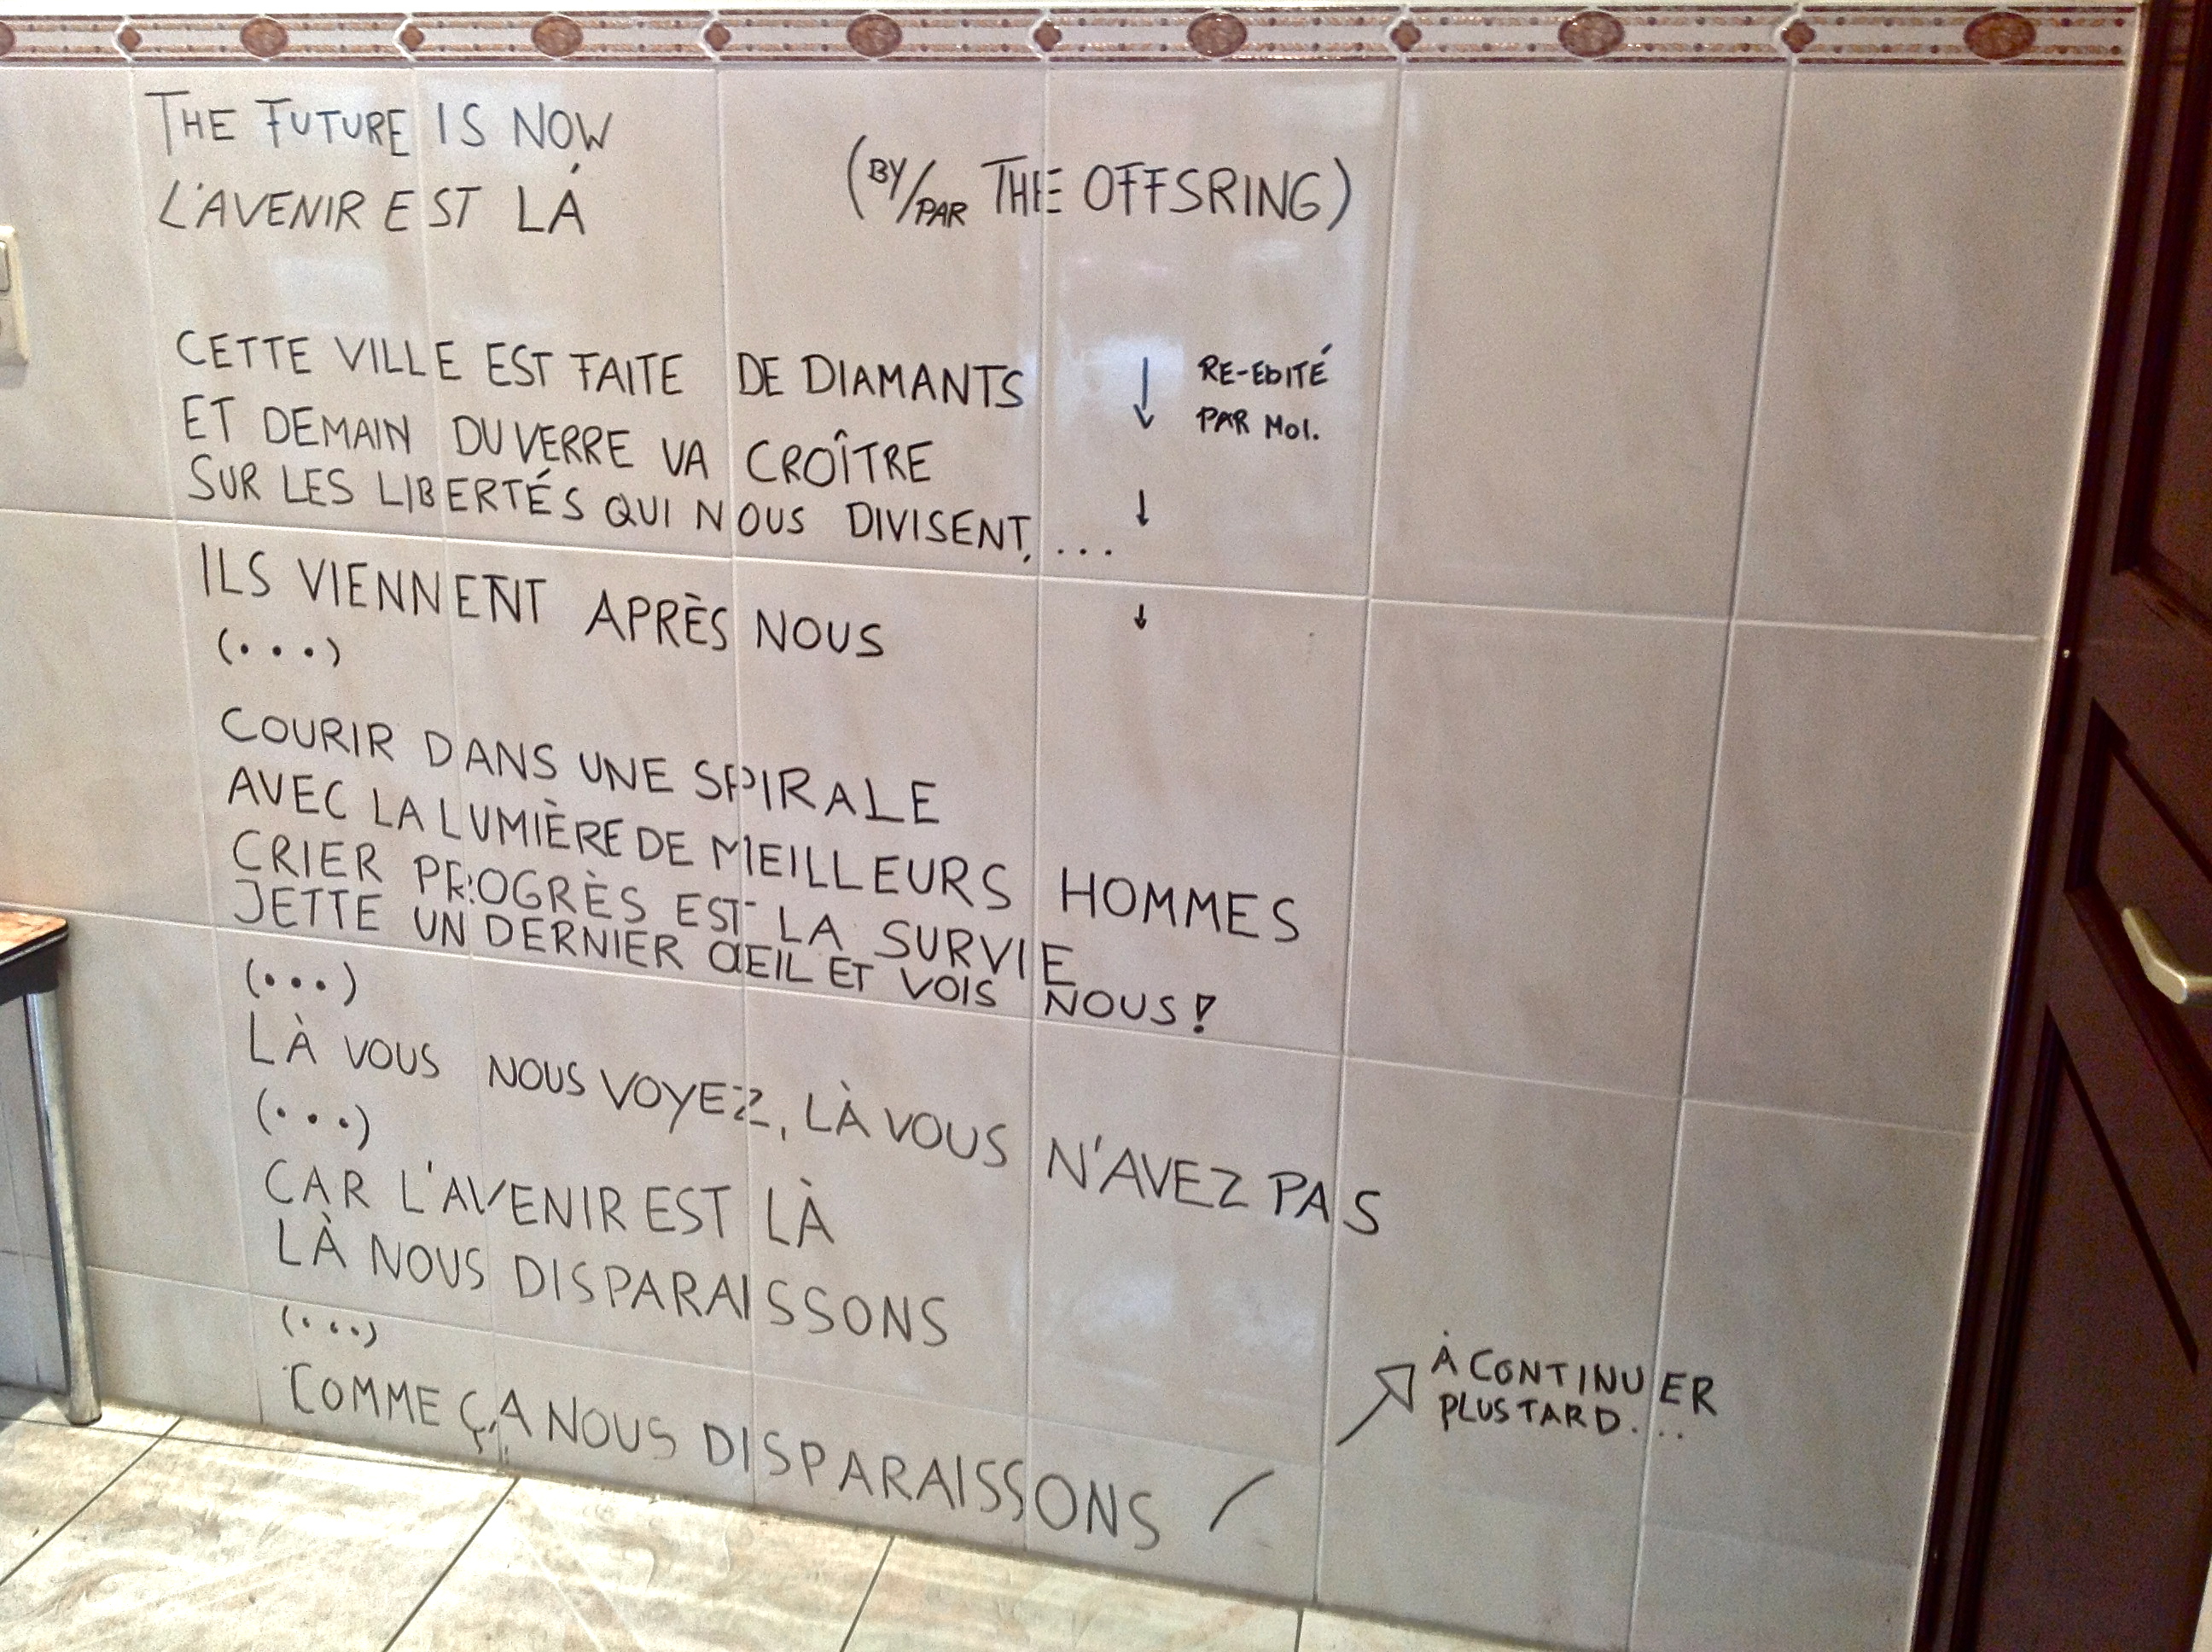 THE FUTURE IS NOW
L'AVENIR EST LÀ
(BY/PAR THE OFFSRING)
CETTE VILLE EST FAITE DE DIAMANTS
ET DEMAIN DU VERRE VA CROÎTRE
SUR LES LIBERTÉS QUI NOUS DIVISENT, ...
↓ RE-EDITÉ
PAR MOI.
↓
ILS VIENNENT APRÈS NOUS
↓
(...)
COURIR DANS UNE SPIRALE
AVEC LA LUMIÈRE DE MEILLEURS HOMMES
CRIER PROGRÈS EST LA SURVIE
JETTE UN DERNIER ŒEIL ET VOIS NOUS!
(...)
LÀ VOUS NOUS VOYEZ, LÀ VOUS N'AVEZ PAS
(...)
CAR L'AVENIR EST LÀ
LÀ NOUS DISPARAISSONS
(...)
COMME ÇA NOUS DISPARAISSONS /
À CONTINUER
PLUS TARD....